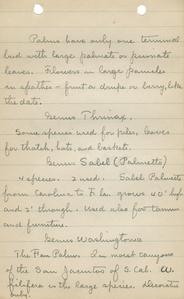 Palms have only one terminal
bud with large palmate or pinnate
leaves. Flowers in large panicles
in spathes - fruit a drupe or berry, like
the date.
Genus Thrinax.
Some species used for piles, leaves
for thatch, hats, and baskets.
Genus Sabal (Palmetto)
4 species. 2 used. Sabal Palmetto
from Carolina to Fla. grows 40' high
and 2' through. Used also for
and furniture.
Genus Washingtonia
The Fan Palm. In moist canyons
of the San Jacintos of S. Cal. W.
filifera is the large species. Decorative
only.